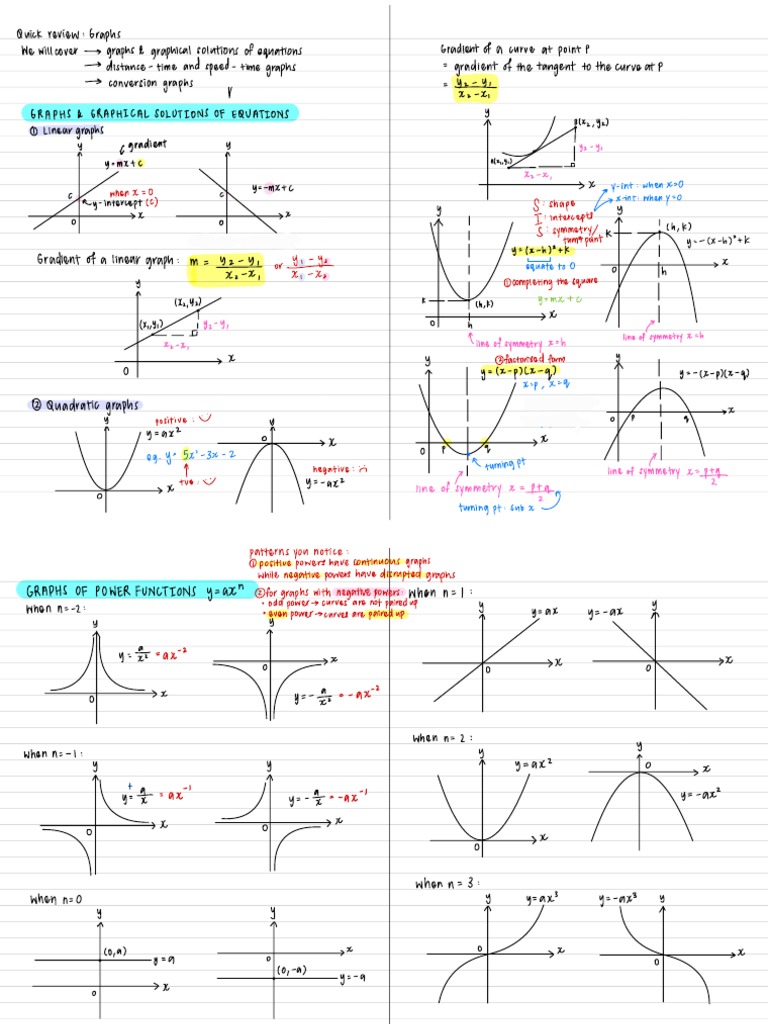 Quick review: Graphs
We will cover → graphs & graphical solutions of equations
→ distance-time and speed-time graphs
→ conversion graphs
GRAPHS & GRAPHICAL SOLUTIONS OF EQUATIONS
① Linear graphs
gradient
y=mx+c
y
c
when x=0
y-intercept (c)
0
x
y
c
y=-mx+c
0
x
Gradient of a linear graph: m = y₂-y₁/x₂-x₁ or y₁-y₂/x₁-x₂
y
(x₂,y₂)
(x₁,y₁)
y₂-y₁
x₂-x₁
0
x
② Quadratic graphs
positive:
y
y=ax²
eg. y=5x²-3x-2
+ve:
0
x
y
0
x
negative:
y=-ax²
Gradient of a curve at point P
= gradient of the tangent to the curve at P
= y₂-y₁/x₂-x₁
y
B(x₂,y₂)
A(x₁,y₁)
y₂-y₁
x₂-x₁
x
y-int: when x=0
x-int: when y=0
S: shape
I: intercepts
S: symmetry/
turn point
y
y=(x-h)²+k
equate to 0
①completing the square
y=mx+c
k
(h,k)
0
h
x
line of symmetry x=h
y
k
(h,k)
y=-(x-h)²+k
x
0
h
line of symmetry x=h
②factorised form
y
y=(x-p)(x-q)
x=p, x=q
0
p
q
x
turning pt
line of symmetry x=p+q/2
turning pt: sub x
y
y=-(x-p)(x-q)
0
p
q
x
line of symmetry x=p+q/2
patterns you notice:
① positive powers have continuous graphs
while negative powers have disrupted graphs
② for graphs with negative powers
• odd power → curves are not paired up
• even power → curves are paired up
GRAPHS OF POWER FUNCTIONS y=axⁿ
when n=-2:
y
y=a/x²=ax⁻²
0
x
y
0
x
y=-a/x²=-ax⁻²
when n=-1:
y
+
y=a/x=ax⁻¹
0
x
y
y=-a/x=-ax⁻¹
0
x
when n=0
y
(0,a)
y=a
0
x
y
x
0
(0,-a)
y=-a
when n=1:
y
y=ax
0
x
y=-ax
y
0
x
when n=2:
y
y=ax²
0
x
y
0
x
y=-ax²
when n=3:
y
y=ax³
0
x
y=-ax³
y
0
x